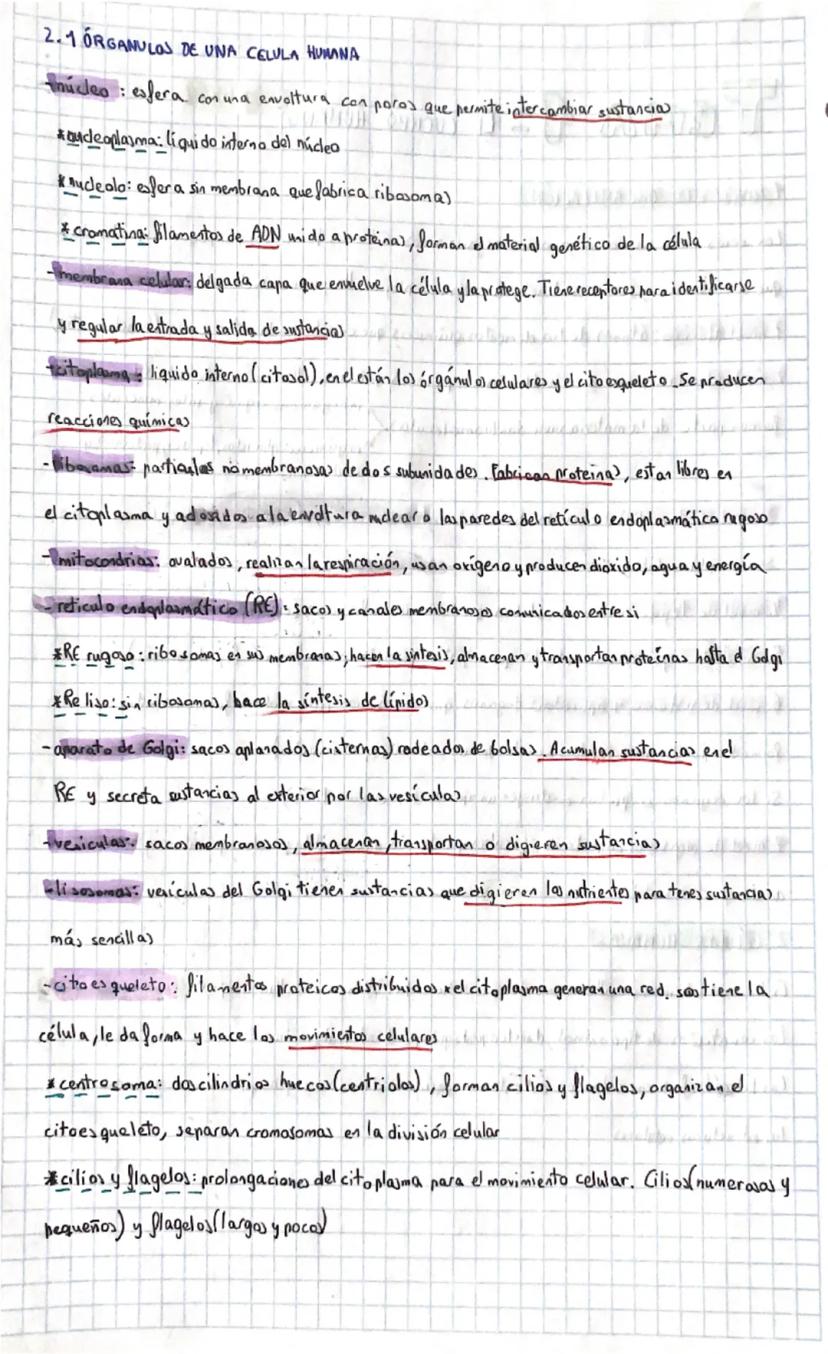 2.1 ÓRGANULOS DE UNA CELULA HUMANA
-núcleo: esfera con una envoltura con poros que permite intercambiar sustancias
*nucleoplasma: líquido interno del núcleo
*nucleolo: esfera sin membrana que fabrica ribosomas
*cromatina: filamentos de ADN unido a proteínas, forman el material genético de la célula
-membrana celular: delgada capa que envuelve la célula y la protege. Tiene receptores para identificarse
y regular la entrada y salida de sustancias
-citoplasma: liquido interno (citosol), en el están los órgánulos celulares y el citoesqueleto. Se producen
reacciones químicas
-ribosomas: particulas no membranosas de dos subunidades. Fabrican proteínas, estan libres en
el citoplasma y adosidos a la envoltura nuclear o las paredes del retículo endoplasmático rugoso
-mitocondrias: ovalados, realizan la respiración, usan oxígeno y producen dioxido, agua y energía
-reticulo endoplasmático (RE): sacos y canales membranosos comunicados entre si
*RE rugoso: ribosomas en sus membranas; hacen la sintesis, almacenan y transportan proteínas hasta el Golgi
*Re liso: sin ribosomas, hace la síntesis de lípidos
-aparato de Golgi: sacos aplanados (cisternas) rodeados de bolsas. Acumulan sustancias en el
RE y secreta sustancias al exterior por las vesículas
-vesiculas: sacos membranosos, almacenan, transportan o digieren sustancias
-lisosomas: vesículas del Golgi tienen sustancias que digieren los nutrientes para tener sustancias
más sencillas
-citoesqueleto: filamentos proteicos distribuidos x el citoplasma generan una red. sostiene la
célula, le da forma y hace los movimientos celulares
*centrosoma: dos cilindrios huecos (centriolos), forman cilios y flagelos, organizan el
citoesqueleto, separan cromosomas en la división celular
*cilios y flagelos: prolongaciones del citoplasma para el movimiento celular. Cilios (numerosos y
pequeños) y flagelos (largos y pocos)